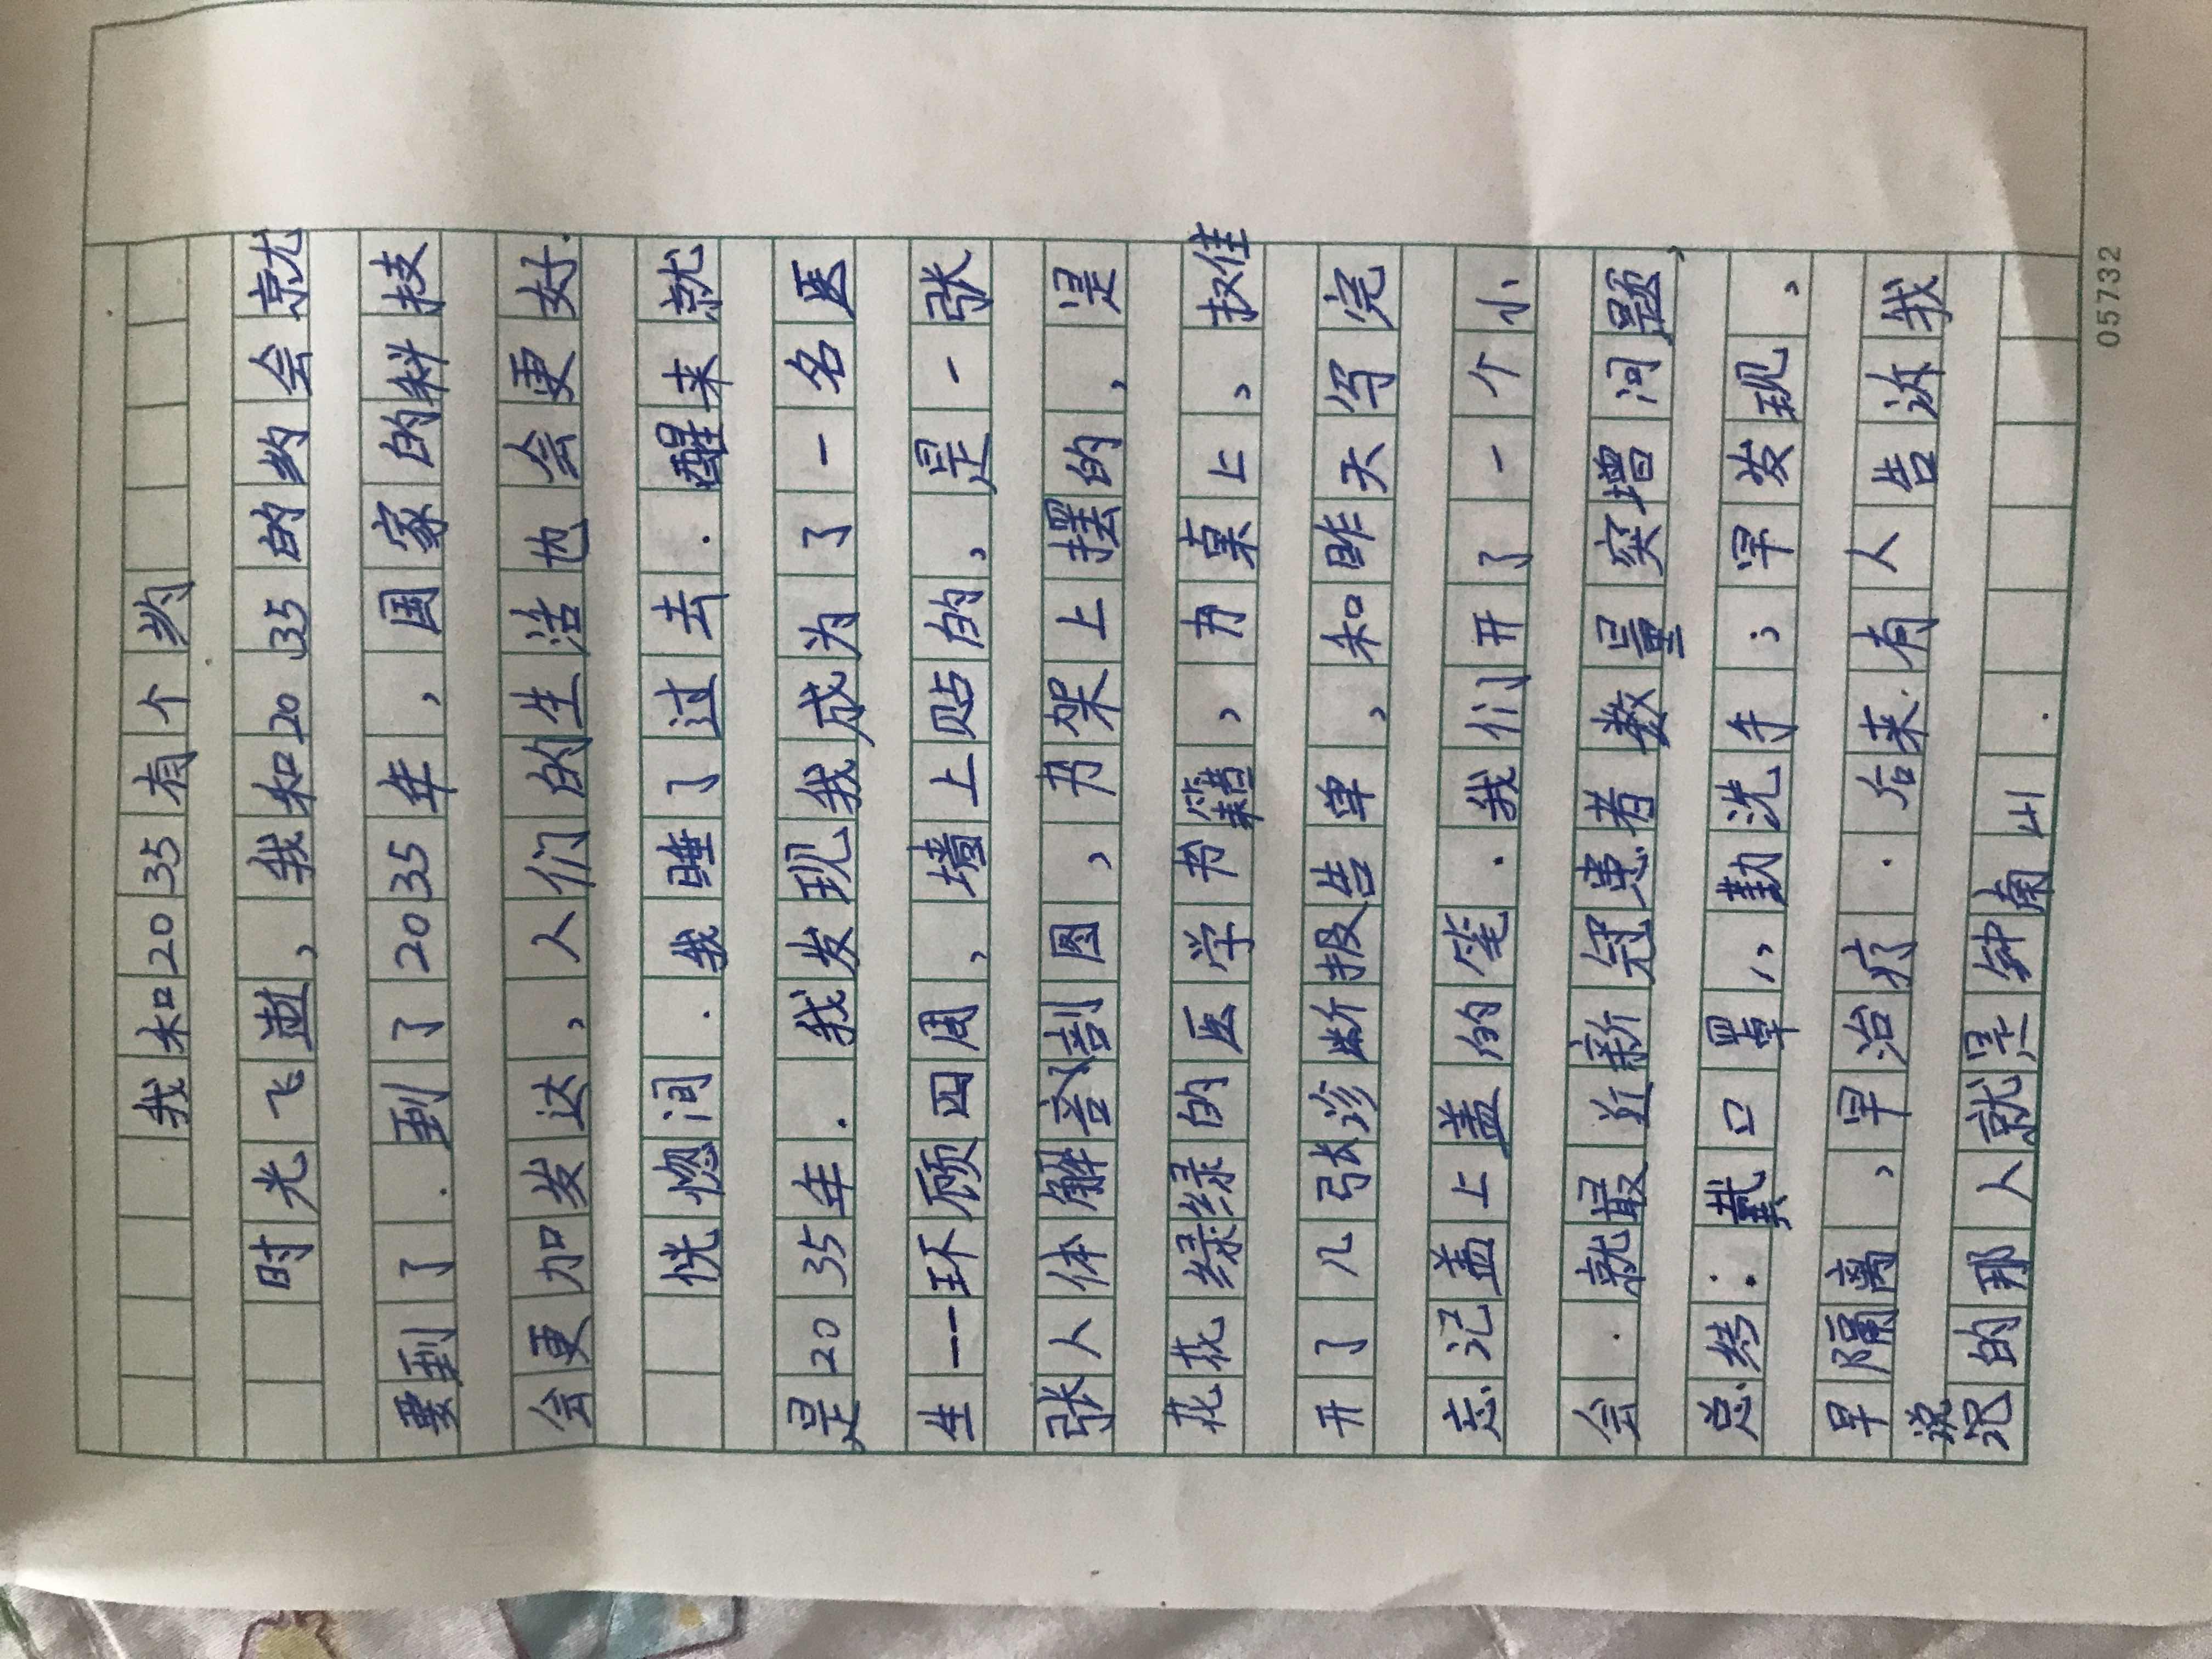 我和2035有个约
时光飞逝,我和2035的约会就
要到了.到了2035年,国家的科技
会更加发达,人们的生活也会更好.
恍惚间.我睡了过去.醒来就
是2035年.我发现我成为了一名医
生一环顾四周,墙上贴的,是一张
张人体解剖图,书架上摆的,是
花花绿绿的医学书籍,办桌上,摊
开了几张诊断报告单,和昨天写完
忘记盖上盖的笔.我们开了一个小
会.就最近新冠患者数量突增问题,
总结:戴口罩,,勤洗手;早发现,
早隔离,早治疗.后来.有人告诉我
说的那人就是钟南山.
05732